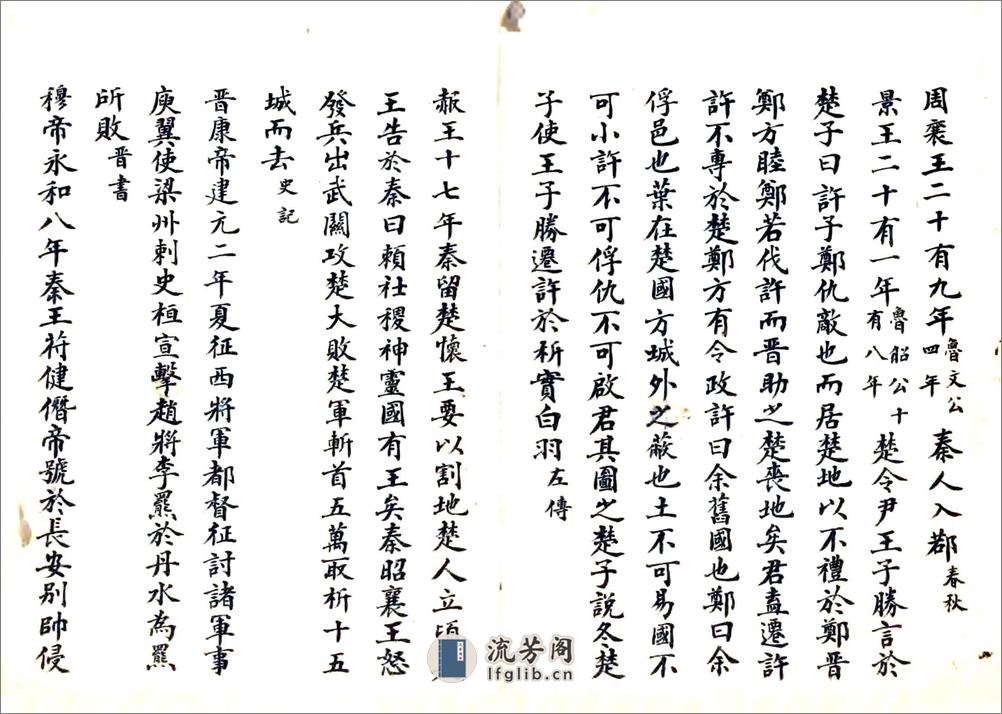 周襄王二十有九年魯文公四年秦人入鄀春秋
景王二十有一年魯昭公十有八年楚令尹王子勝言於
楚子曰許子鄭仇敵也而居楚地以不禮於鄭晋
鄭方睦鄭若伐許而晋助之楚喪地矣君盍遷許
許不專於楚鄭方有令政許曰余舊國也鄭曰余
俘邑也葉在楚國方城外之蔽也土不可易國不
可小許不可俘仇不可啟君其圖之楚子說冬楚
子使王子勝遷許於析實白羽左傳
赧王十七年秦留楚懷王要以割地楚人立頃
王告於秦曰賴社稷神靈國有王矣秦昭襄王怒
發兵出武關攻楚大敗楚軍斬首五萬取析十五
城而去史記
晋康帝建元二年夏征西將軍都督征討諸軍事
庾翼使梁州刺史桓宣擊趙將李羆於丹水為羆
所敗晋書
穆帝永和八年秦王苻健僭帝號於長安别帥侵
流芳阁
lfglib.cn